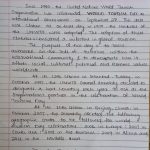 Since 1980, the United Nations World Tourism
Organization has celebrated WORLD TOURISM DAY as
international observances on September 27. This date
was chosen as on that day in 1970, the Statutes of
the UNWTO were adopted. The adoption of these
Statutes is considered a milestone in global tourism.
The purpose of this day is to raise
awareness on the role of tourism within the
international community & to demonstrate how it
affects social, cultural, political and economic values
worldwide.
At its 12th Session in Istanbul, Turkey, in
October 1997, the UNWTO General Assembly decided to
designate a host country each year to act as the
Organization's partner in the celebration of World
Tourism Day.
At its 15th Session in Beijing, China, in
October 2003, the Assembly decided the following
geographic order to be followed for World
Tourism Day celebrations: 2006 in Europe; 2007 in
South Asia; 2008 in the Americas; 2009 in Africa and
2011 in the Middle East.